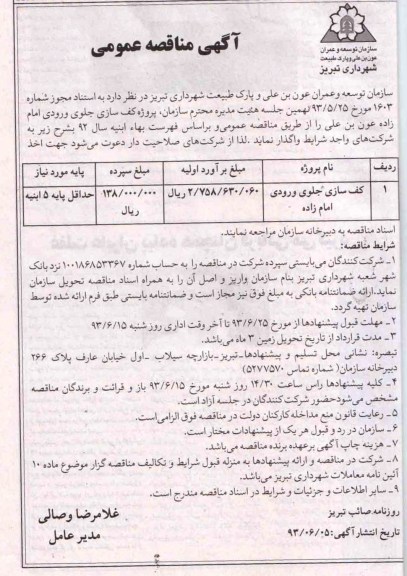 آگهی مناقصه عمومی
سازمان توسعه و عمران
عون بن علی و پارک طبیعت
شهرداری تبریز
سازمان توسعه وعمران عون بن علی و پارک طبیعت شهرداری تبریز در نظر دارد به استناد مجوز شماره
۱۶۰۳ مورخ ۹۳/۵/۲۵ نهمین جلسه هیئت مدیره محترم سازمان، پروژه کف سازی جلوی ورودی امام
زاده عون بن علی را از طریق مناقصه عمومی و براساس فهرست بهاء ابنیه سال ۹۲ بشرح زیر به
شرکت‌های واجد شرایط واگذار نماید .لذا از شرکت‌های صلاحیت دار دعوت می‌شود جهت اخذ
ردیف نام پروژه مبلغ بر آورد اولیه مبلغ سپرده پایه مورد نیاز
۱ کف سازی جلوی ورودی ۲/۷۵۸/۶۳۰/۰۶۰ ریال ۱۳۸/۰۰۰/۰۰۰ حداقل پایه ۵ ابنیه
امام زاده ریال
اسناد مناقصه به دبیرخانه سازمان مراجعه نمایند.
شرایط مناقصه:
۱ـ شرکت کنندگان می‌بایستی سپرده شرکت در مناقصه را به حساب شماره ۱۰۰۱۸۶۸۵۳۳۶۷ نزد بانک
شهر شعبه شهرداری تبریز بنام سازمان واریز و اصل آن را به همراه اسناد مناقصه تحویل سازمان
نماید.ارائه ضمانتنامه بانکی به مبلغ فوق نیز مجاز است و ضمانتنامه بایستی طبق فرم ارائه شده توسط
سازمان تهیه گردد.
۲ـ مهلت قبول پیشنهادها از مورخ ۹۳/۶/۲۵ تا آخر وقت اداری روز شنبه ۹۳/۶/۱۵
۳ـ مدت قرارداد از تاریخ تحویل زمین ۳ ماه می‌باشد.
تبصره: نشانی محل تسلیم و پیشنهادها ـ تبریز ـ بازارچه سیلاب ـ اول خیابان عارف پلاک ۲۶۶
دبیرخانه سازمان( شماره تماس ۵۲۷۷۵۷۰)
۴ـ کلیه پیشنهادها راس ساعت ۱۴/۳۰ روز شنبه مورخ ۹۳/۶/۱۵ باز و قرائت و برندگان مناقصه
مشخص می‌شود حضور شرکت کنندگان در جلسه آزاد است.
۵ـ رعایت قانون منع مداخله کارکنان دولت در مناقصه فوق الزامی‌است.
۶ـ سازمان در رد و قبول هر یک از پیشنهادات مختار است.
۷ـ هزینه چاپ آگهی برعهده برنده مناقصه می‌باشد.
۸ـ شرکت در مناقصه و ارائه پیشنهادها به منزله قبول شرایط و تکالیف مناقصه گزار موضوع ماده ۱۰
آئین نامه معاملات شهرداری تبریز می‌باشد.
۹ـ سایر اطلاعات و جزئیات و شرایط در اسناد مناقصه مندرج است.
روزنامه صائب تبریز
تاریخ انتشار آگهی: ۹۳/۰۶/۰۵
غلامرضا وصالی
مدیر عامل